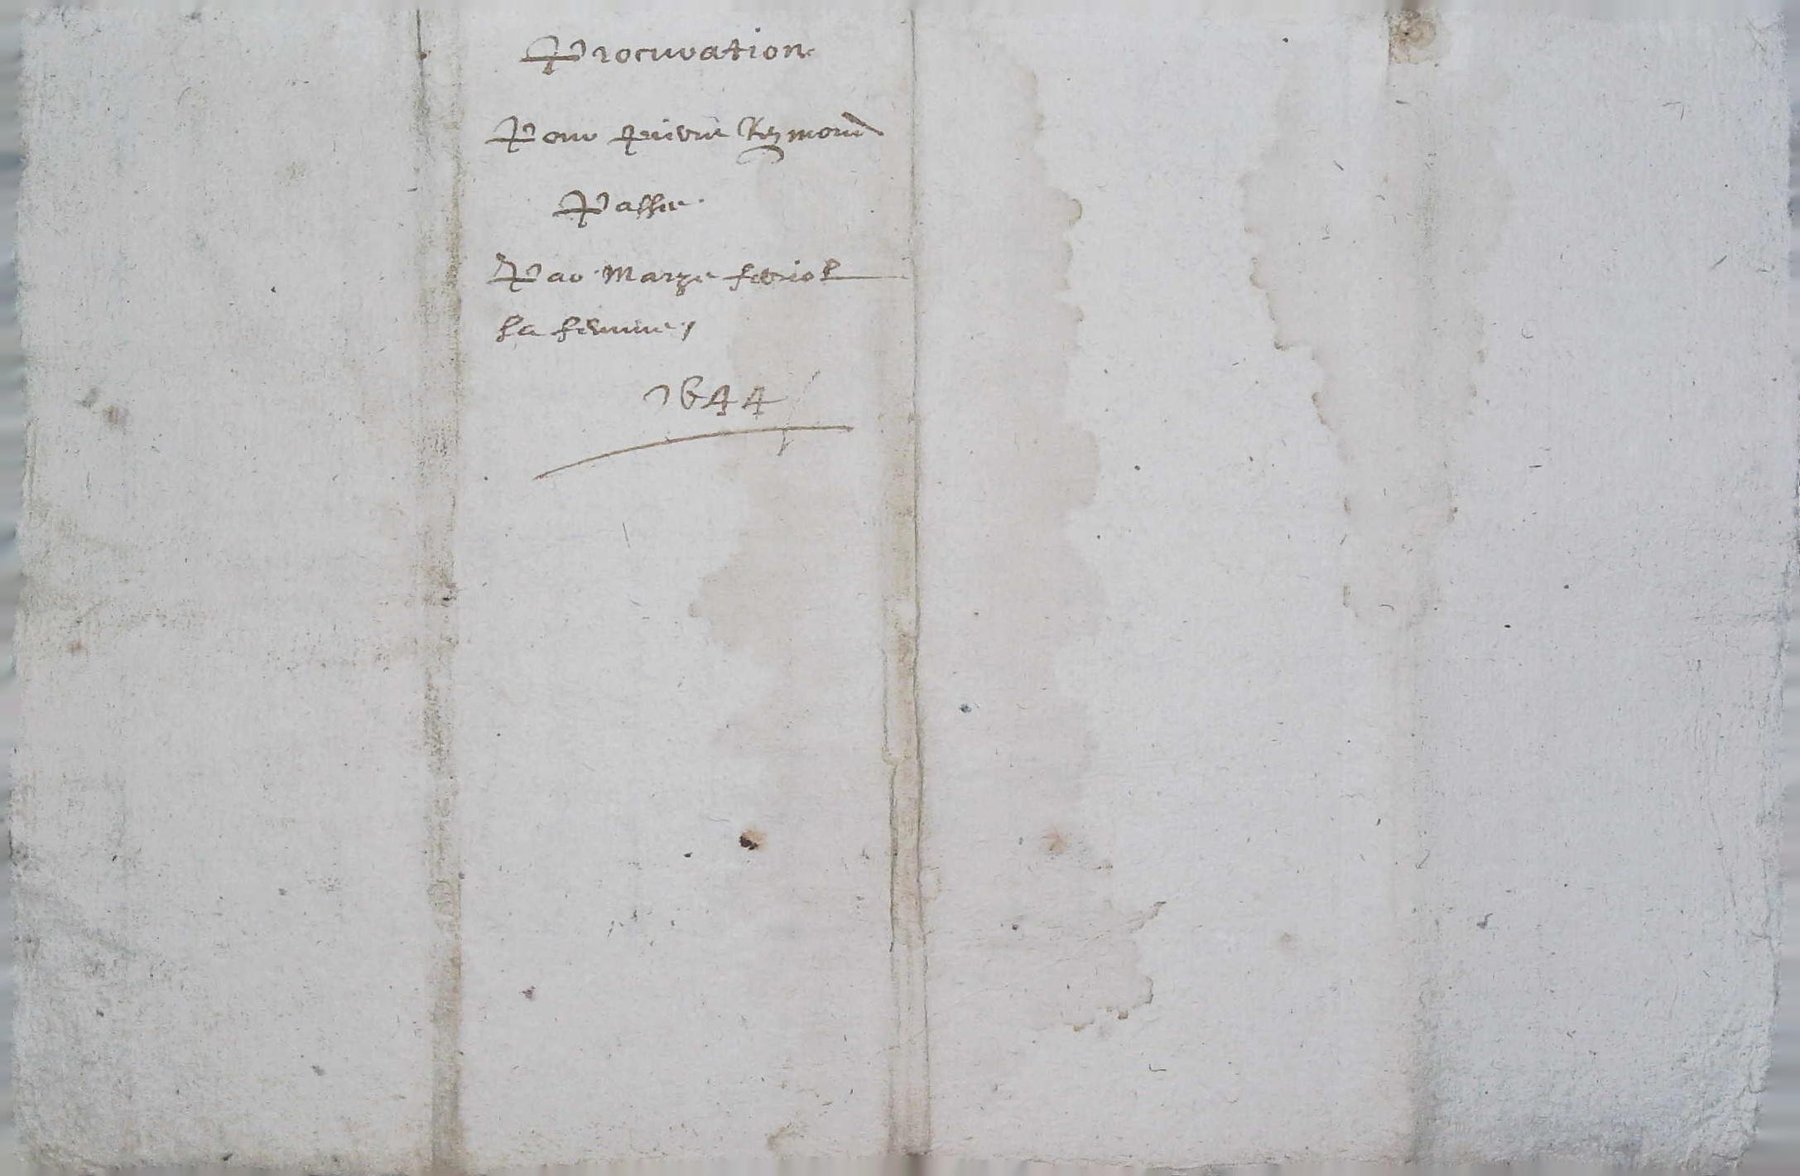 Procuration
Pour pierre Reymond
Passee
Par Marye feriol
sa femme
1644